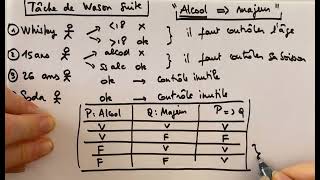 Tâche de Wason Suite
"Alcool => majeur"
① Whisky <18 x
>18 ok } il faut contrôler l'âge
② 15 ans alcool x
ss alc ok } il faut contrôler sa boisson
③ 26 ans ok → contrôle inutile
④ Soda ok → contrôle inutile
P: Alcool Q: Majeur P => Q
V V V
V F F
F V V
F F V